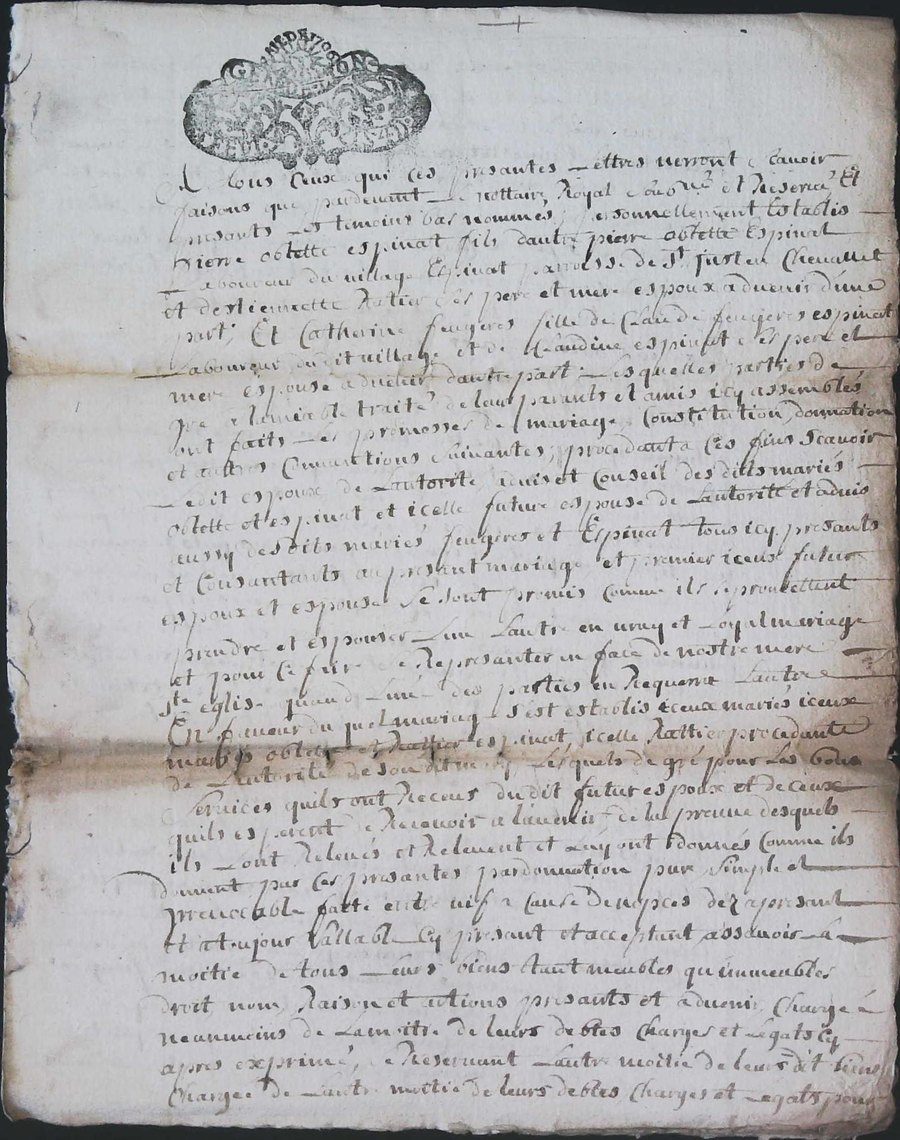 GEN DE LYON
A tous ceux qui ces presantes Lettres verront scavoir
faisons que pardevant Le nottaire Royal soubne et Reservé Et
presants Les temoins bas nommés, personnellement Establis
pierre obtette espinat fils dautre pierre obtette Espinat
Laboureur du village Espinat parroisse de St Just en Chevallet
et destiennette Ratier ses pere et mere espoux advenir d'une
part, Et Catherine feugeres fille de Claude feugeres espinat
Laboureur dudit village et de Claudine espinat ses pere et
mere espouse advenir dautre part. Lesquelles parties de
gre a lamiable traité de leur parants et amis icy assemblés
ont faits les promesses de mariage, Constitution, donnation
et autres Conventions suivantes, procedant a ces fins scavoir
Ledit espoux de Lautorité, advis et Conseil des dits mariés
obtette et espinat et icelle future espouse de Lautorité et advis
aussy desdits mariés feugeres et Espinat tous icy presants
et Consantants au presant mariage et premier iceux futur
espoux et espouse se sont promis comme ils se promettent
prendre et espouser Lun Lautre en vray et Loyal mariage
et pour ce faire se Representer en face de nostre mere
Ste eglise quand Lune des parties en Requerra Lautre
En faveur duquel mariage s'est establis iceux mariés iceux
mariés obtette et Rattier espinat, icelle Rattier procedante
de Lautorité de son dit mary Lesquels de gré pour Les bons
services quils ont Receus du dit futur espoux et de ceux
quils esperent de Recevoir a lavenir de la preuve desquels
ils Lont Relevés et Relevent et Luy ont donnés Comme ils
donnent par ces presantes par donnation pure, simple et
irrevocable faite entre vifs a Cause de nopces dez apresant
et atoujour Vallable icy presant et acceptant assavoir La
moitie de tous Leurs biens tant meubles qu'immeubles
droit, nom, Raison et actions presants et advenir, Chargé
neanmoins de Lamoitie de leurs debtes Charges et Legats cy
apres exprimé, se Reservant Lautre moitié de leurs dit biens
Chargée de Lautre moitié de leurs debtes, Charges et Legats pour